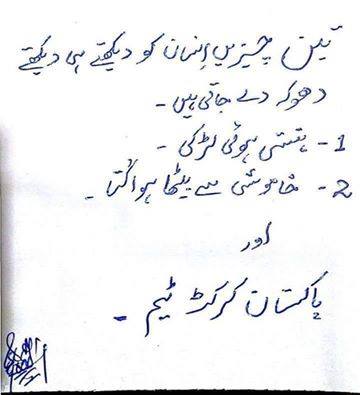 تین چیزیں اِنسان کو دیکھتے ہی دیکھتے
دھوکہ دے جاتی ہیں -
1- ہنستی ہوئی لڑکی -
2- خاموشی سے بیٹھا ہوا کُتا -
اور
پاکستان کرکٹ ٹیم -